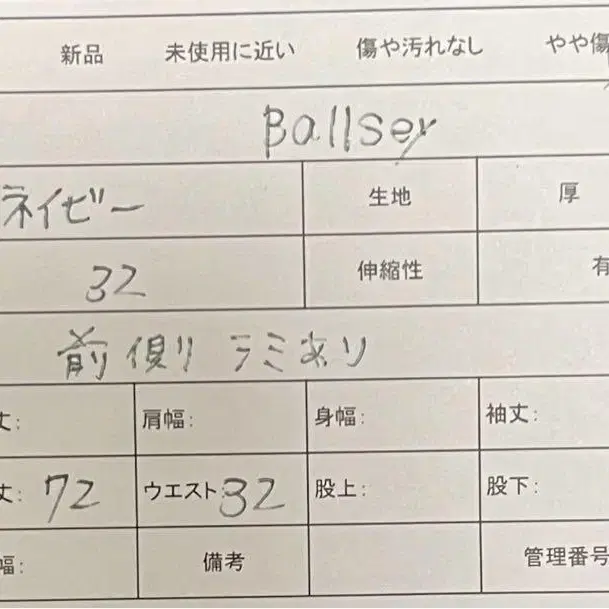 新品 未使用に近い 傷や汚れなし やや傷
Ballsey
ネイビー 生地 厚
32 伸縮性 有
前側 シミあり
丈: 肩幅: 身幅: 袖丈:
丈: 72 ウエスト: 32 股上: 股下:
幅: 備考 管理番号